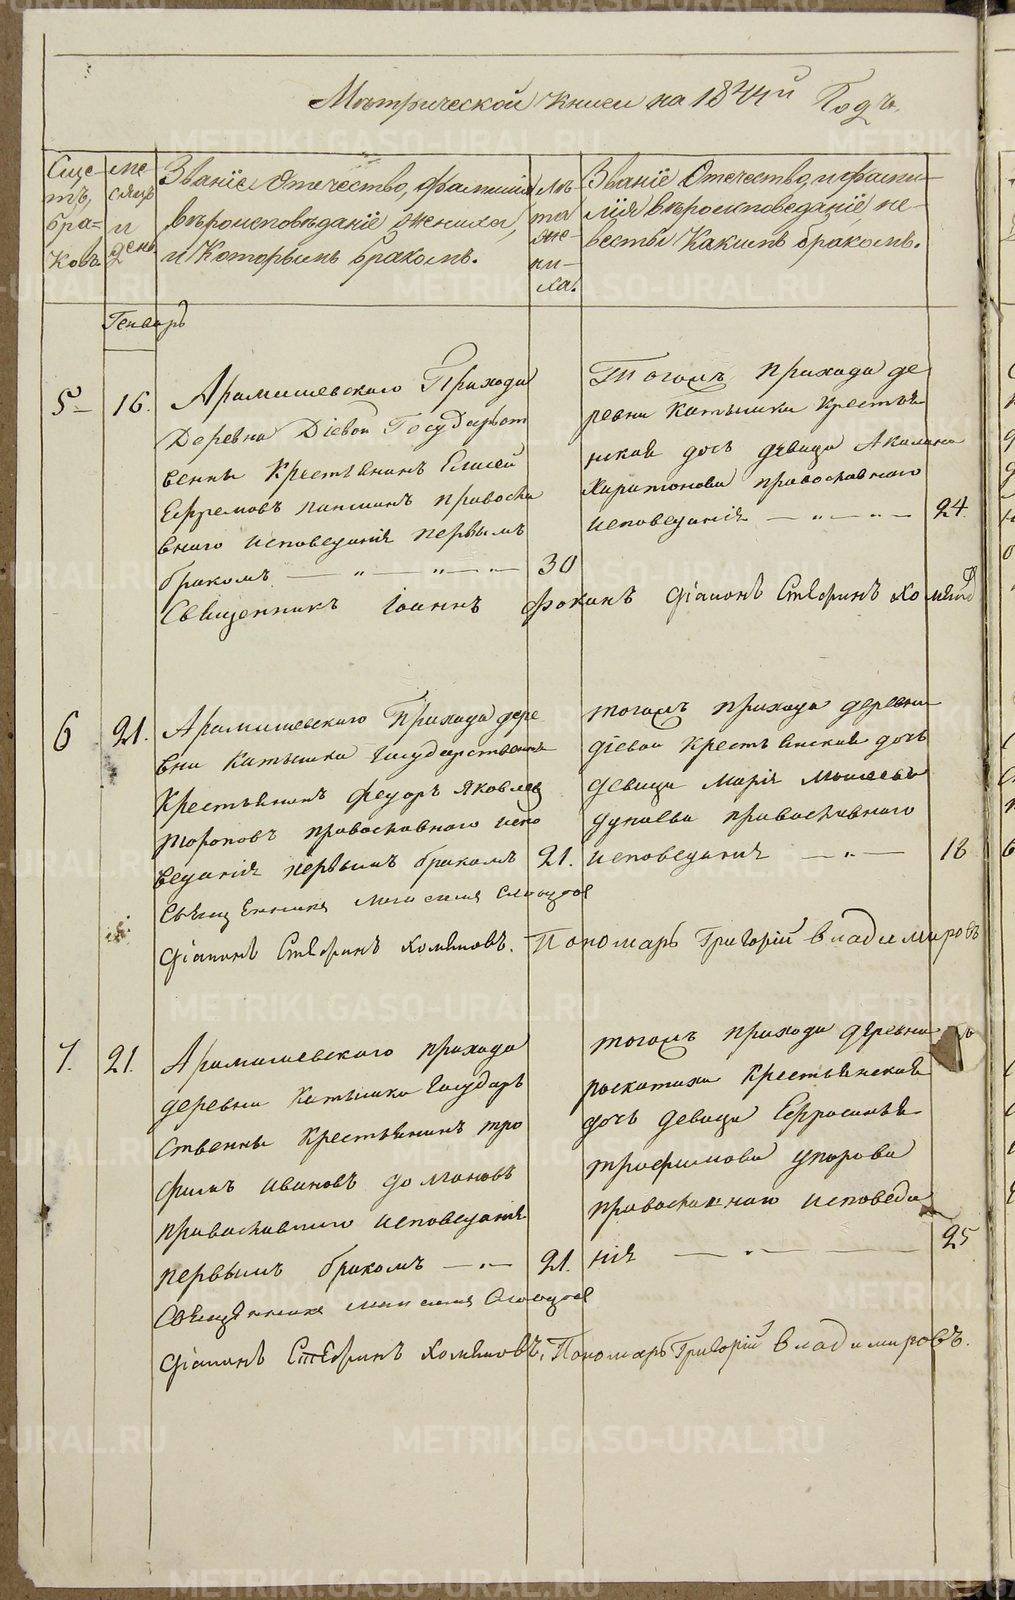 Метрической книги на 1844й Годъ.
Счетъ браковъ
месяцъ и день
Званіе Отечество, фамилія
вѣроисповѣданіе жениха,
и Которымъ бракомъ.
лѣта жениха.
Званіе Отечество, и фамилія
вѣроисповеданіе невесты
Какимъ бракомъ.
Генварь
5 16.
Арамашевскаго Прихода
Деревни Діевой Государст
венны Крестьянинъ Елисей
Ефремовъ правосла
внаго исповеданія первымъ
бракомъ — „ — „ — „ — 30
Тогомъ прихода де
ревни Катышки Крестья
нская дочь девица Акилина
Харитонова православнаго
исповеданія — „ — „ — 24.
Священникъ Іоаннъ Фокинъ діаконъ Стефанъ Хомяковъ
6 21.
Арамашевскаго Прихода дере
вни Катышка государственны
Крестьянинъ Федоръ Яковлев
Тороповъ православнаго испо
веданія первымъ бракомъ 21.
тогомъ прихода деревни
діевой крестьянская дочь
девица Марія Моисеева
дунаева православнаго
исповедания — „ — 18
Священникъ Словцов
діаконъ Стефанъ Хомяковъ. Пономарь Григорій Владимировъ
7. 21.
Арамашевскаго прихода
деревни Катышка Государ
ственны Крестьянинъ тро
фимъ Ивановъ долмановъ
православнаго исповеданія
первымъ бракомъ — „ — 21.
тогомъ прихода деревни
роскатиха Крестьянская
дочь девица Ефросинья
трофимова упорова
православнаго исповеда
нія — „ — 25
Священникъ Словцов
діаконъ Стефанъ Хомяковъ. Пономарь Григорій Владимировъ.
METRIKI.GASO-URAL.RU